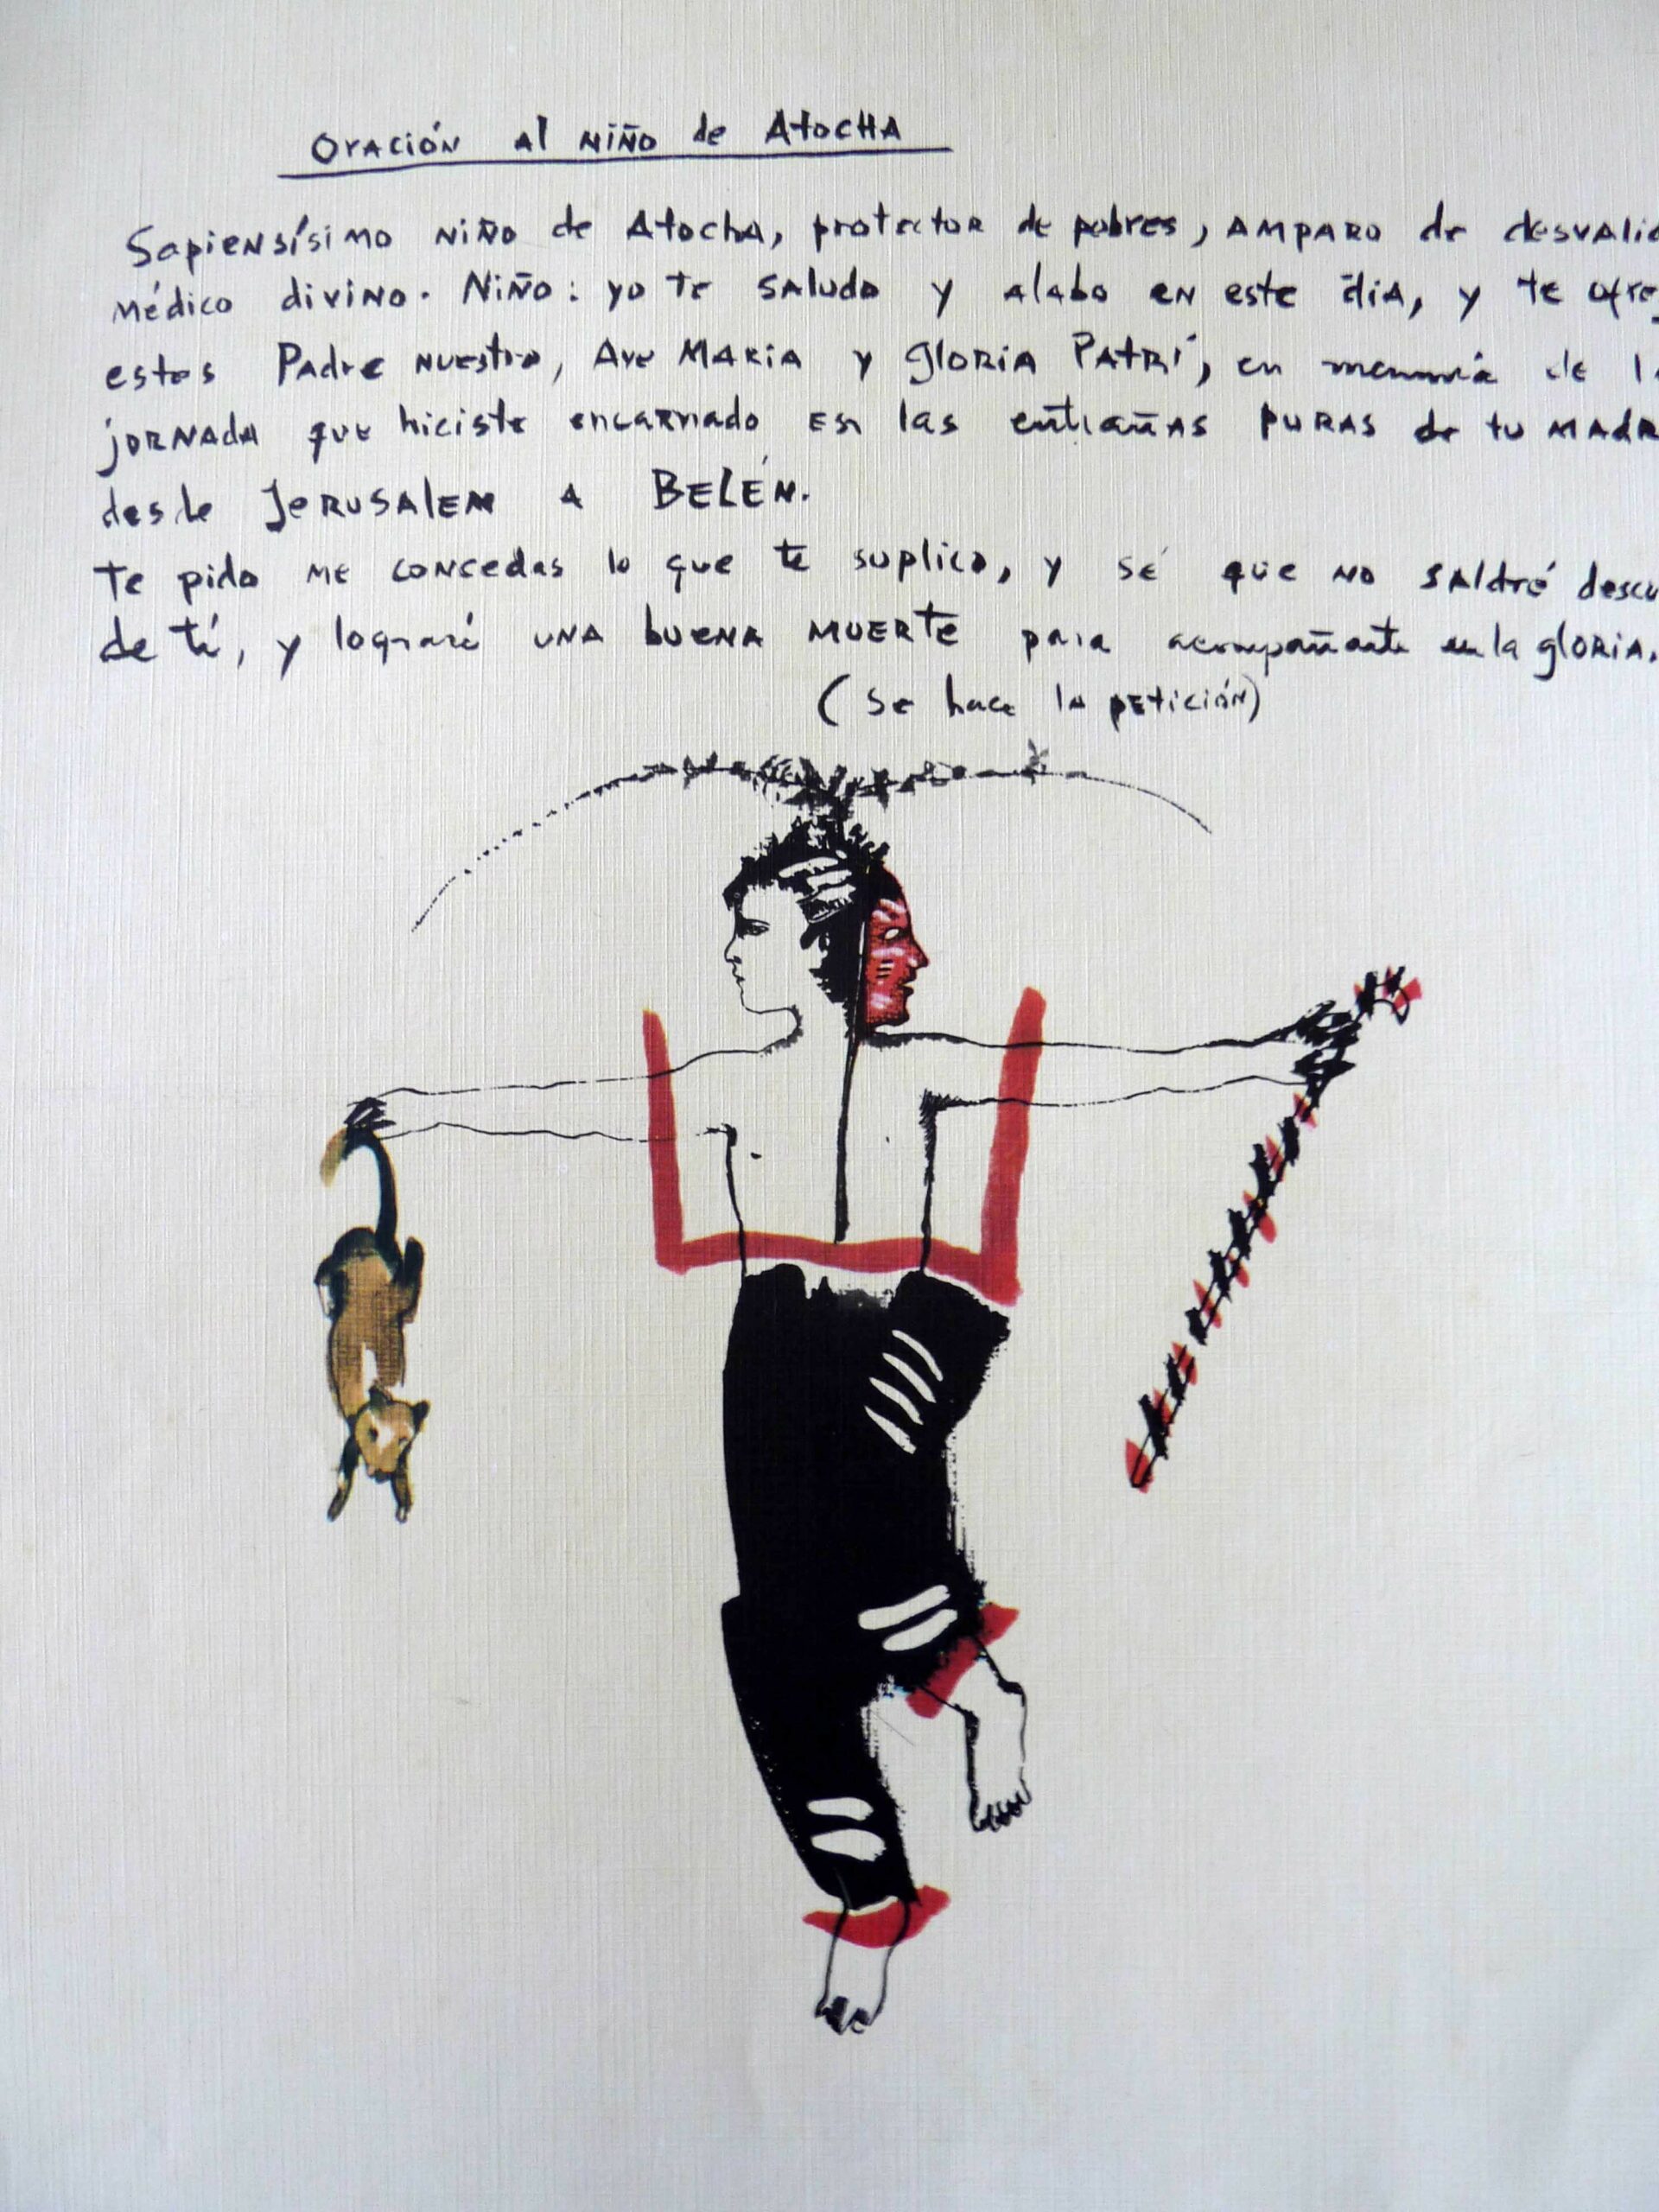 Oración al niño de Atocha
Sapiensísimo niño de Atocha, protector de pobres, amparo de desvalid
médico divino. Niño: yo te saludo y alabo en este día, y te ofre
estos Padre nuestro, Ave Maria y gloria Patrí, en memoria de l
jornada que hiciste encarnado en las entrañas puras de tu madr
desde Jerusalem a Belén.
te pido me concedas lo que te suplico, y sé que no saldré descu
de tí, y lograré una buena muerte para acompañarte en la gloria.
(se hace la petición)